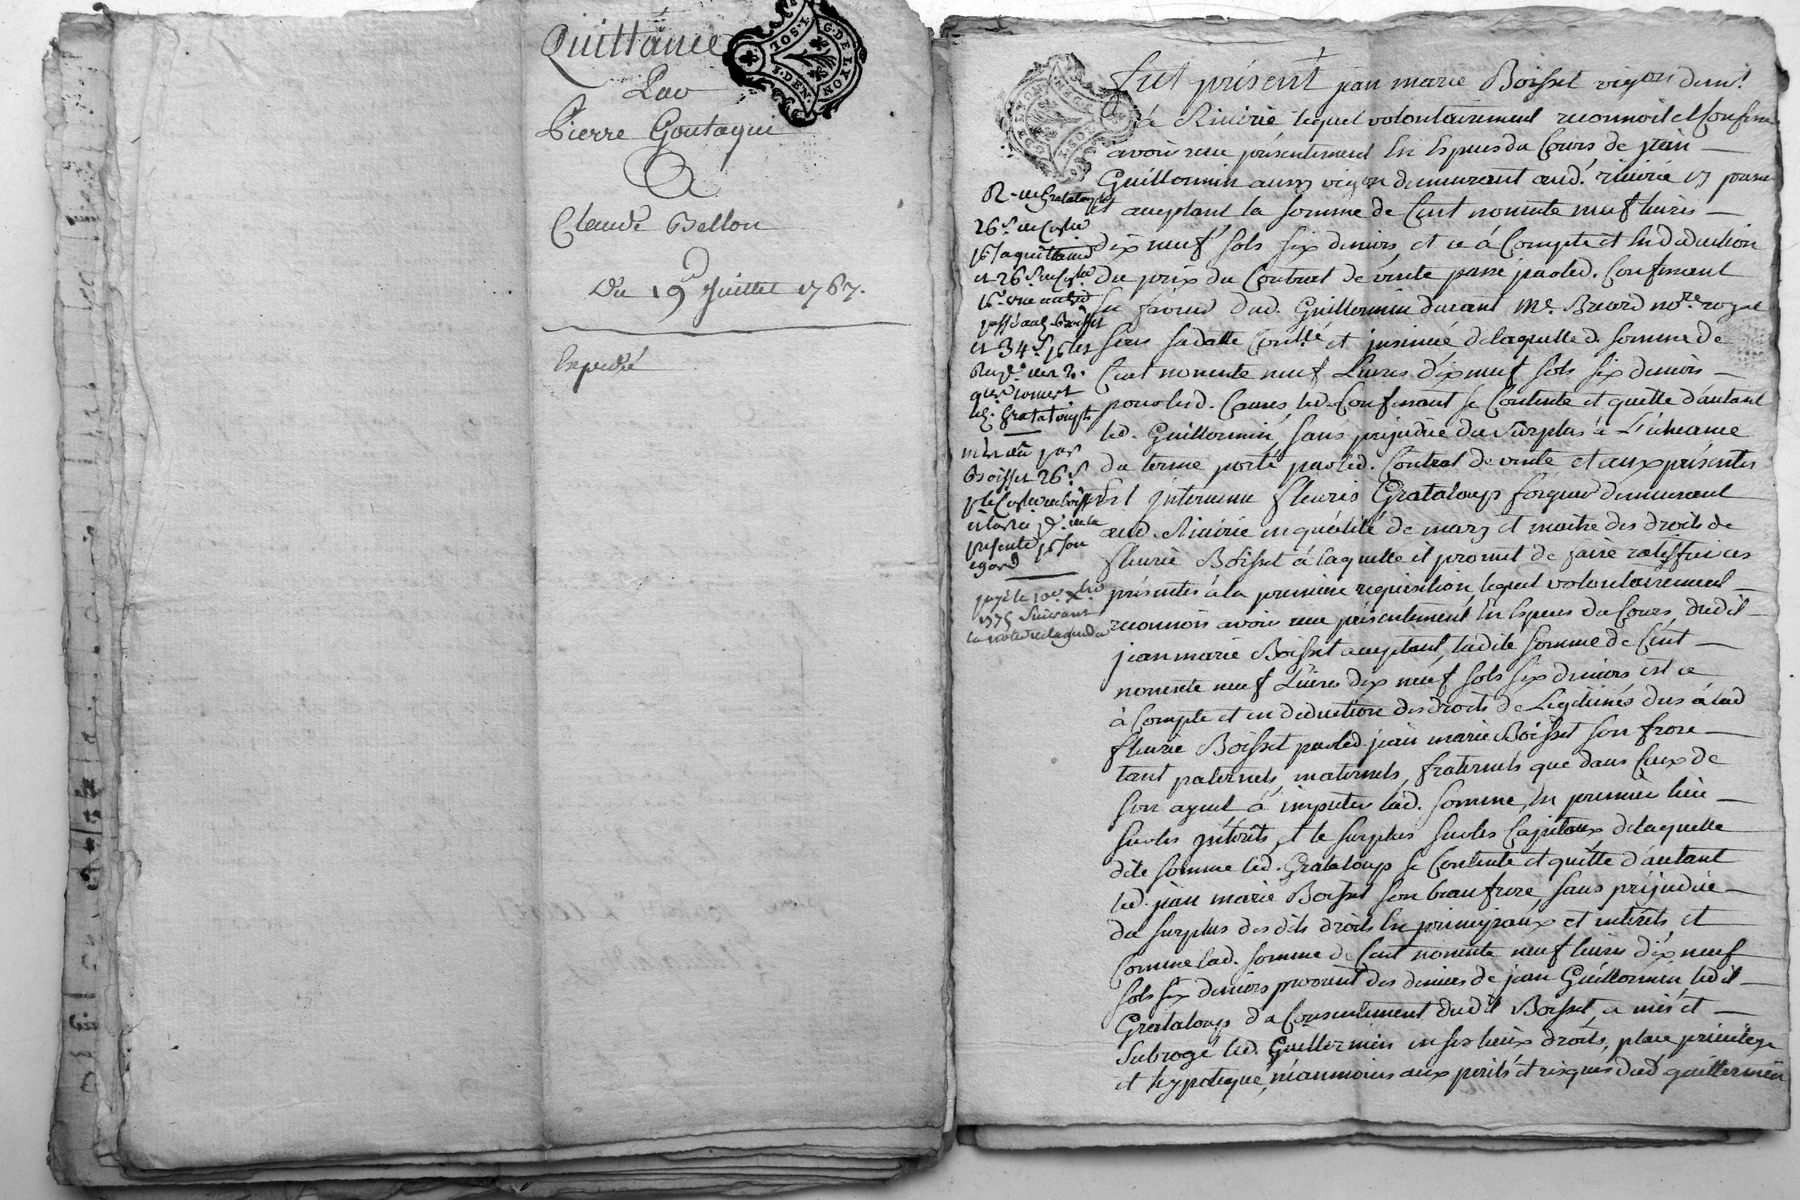 Quittance
Par
Pierre Goutagny
A
Claude Bellon
Du 19 Juillet 1767.
Expedié
G. DE LYON
2. SOLS.
Fut présent jean marie Boisset vigon demt.
à Riverie lequel volontairement reconnoit et Confesse
avoir reçu présentement En Espèces du Cours de jean
Guillermin aussy vigon demeurant aud. riverie
et acceptant la somme de Cent nonente neuf livres
dix neuf sols six deniers, et ce à Compte et En deduction
du prix du Contrat de vente passé par led. Confessant
En faveur dud. Guillermin devant Me. nore. royal
sous sa datte Contllé et insinué de laquelle d. somme de
Cent nonente neuf Livres dix neuf sols six deniers
pour les d. Causes led. Confessant se Contente et quitte d'autant
led. Guillermin, sans préjudice du Surplus à L'écheance
du terme porté par led. Contrat de vente et aux présentes
Est intervenu fleuris Grataloup forgeur demeurant
aud. Riverie en qualité de mary et maitre des droits de
fleurie Boisset à laquelle il promet de faire ratiffier ces
présentes à la première requisition, lequel volontairement
reconnois avoir reçu présentement En Espèces du Cours dudit
jean marie Boisset acceptant, ladite somme de Cent
nonente neuf Livres dix neuf sols six deniers est ce
à Compte et en deduction des droits de Legitimés dus à lad
fleurie Boisset par led. jean marie Boisset son frere
tant paternels, maternels, fraternels que dans Ceux de
son ayeul à imputer lad. somme, En premier lieu
sur les intérêts, et le surplus sur les Capitaux de laquelle
dite somme led. Grataloup se Contente et quitte d'autant
led. jean marie Boisset son beau frere, sans préjudice
du surplus des dits droits En principaux et intérêts, et
Comme lad. somme de Cent nonente neuf livres dix neuf
sols six deniers provient des deniers de jean Guillermin, ledit
Grataloup du Consentement dudit Boisset a mis et
Subrogé led. Guillermin en ses lieux droits, place privilege
et hypoteque, néanmoins aux perils et risques dud guillermin
Grataloup
26
la quittance
et 26
passé Boisset
et 34
Grataloup
par
Boisset 26
presente
egard
payé le
1775 Suivant